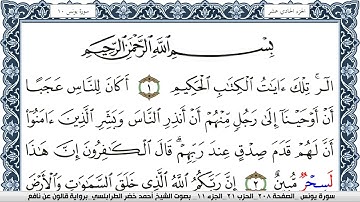 سورة يونس ١٠
الجزء الحادي عشر
بِسْمِ اللَّهِ الرَّحْمَٰنِ الرَّحِيمِ
الٓر تِلْكَ ءَايَٰتُ الْكِتَٰبِ الْحَكِيمِ ١ أَكَانَ لِلنَّاسِ عَجَبًا
أَنْ أَوْحَيْنَا إِلَىٰ رَجُلٍ مِنْهُمُۥ أَنْ أَنذِرِ النَّاسَ وَبَشِّرِ الَّذِينَ ءَامَنُوٓا
أَنَّ لَهُمْ قَدَمَ صِدْقٍ عِندَ رَبِّهِمْ قَالَ الْكَٰفِرُونَ إِنَّ هَٰذَا
لَسِحْرٌ مُّبِينٌ ٢ إِنَّ رَبَّكُمُ اللَّهُ الَّذِي خَلَقَ السَّمَٰوَٰتِ وَالْأَرْضَ
سورة يونس الصفحة ٢٠٨ الحزب ٢١ الجزء ١١ بصوت الشيخ أحمد خضر الطرابلسي برواية قالون عن نافع